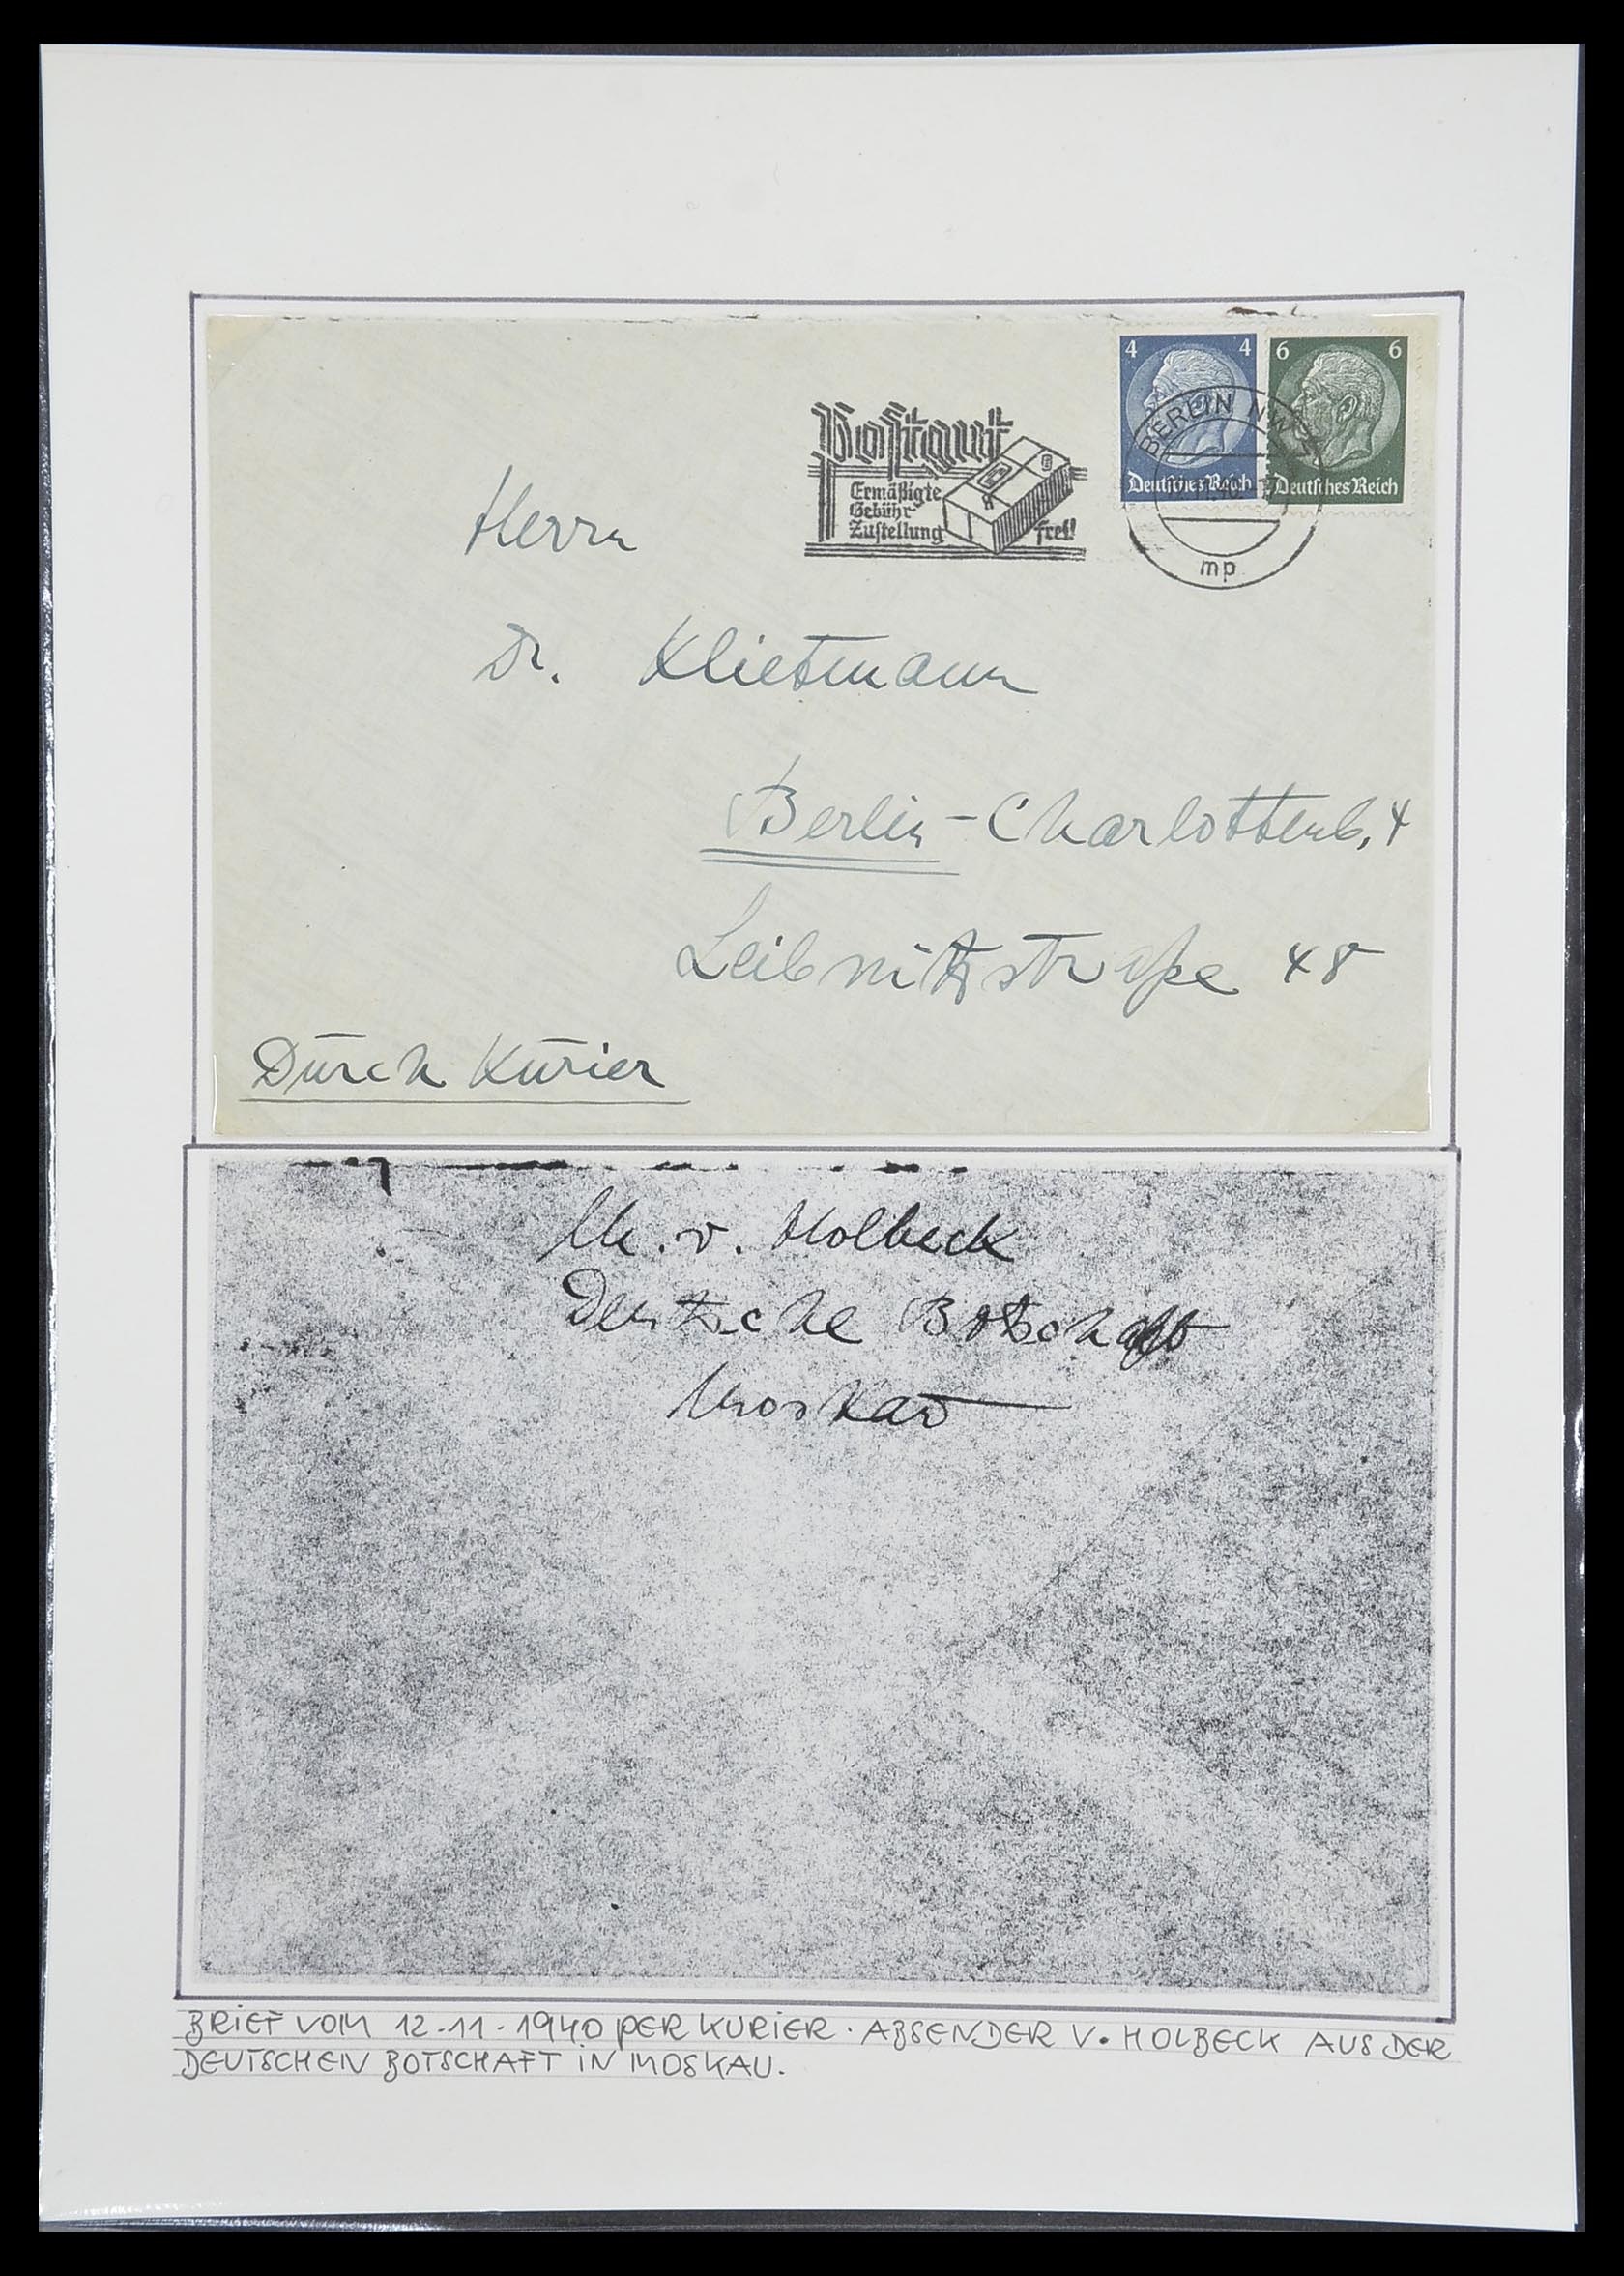 4 4
6 6
Deutsches Reich
Deutsches Reich
BERLIN NW
mp
Postgut
Ermäßigte
Gebühr
Zustellung frei!
Herrn
Dr. Klietmann
Berlin-Charlottenb. 4
Leibnitzstraße 48
Durch Kurier
M. v. Holbeck
Deutsche Botschaft
Moskau
BRIEF VOM 12-11-1940 PER KURIER. ABSENDER V. HOLBECK AUS DER
DEUTSCHEN BOTSCHAFT IN MOSKAU.